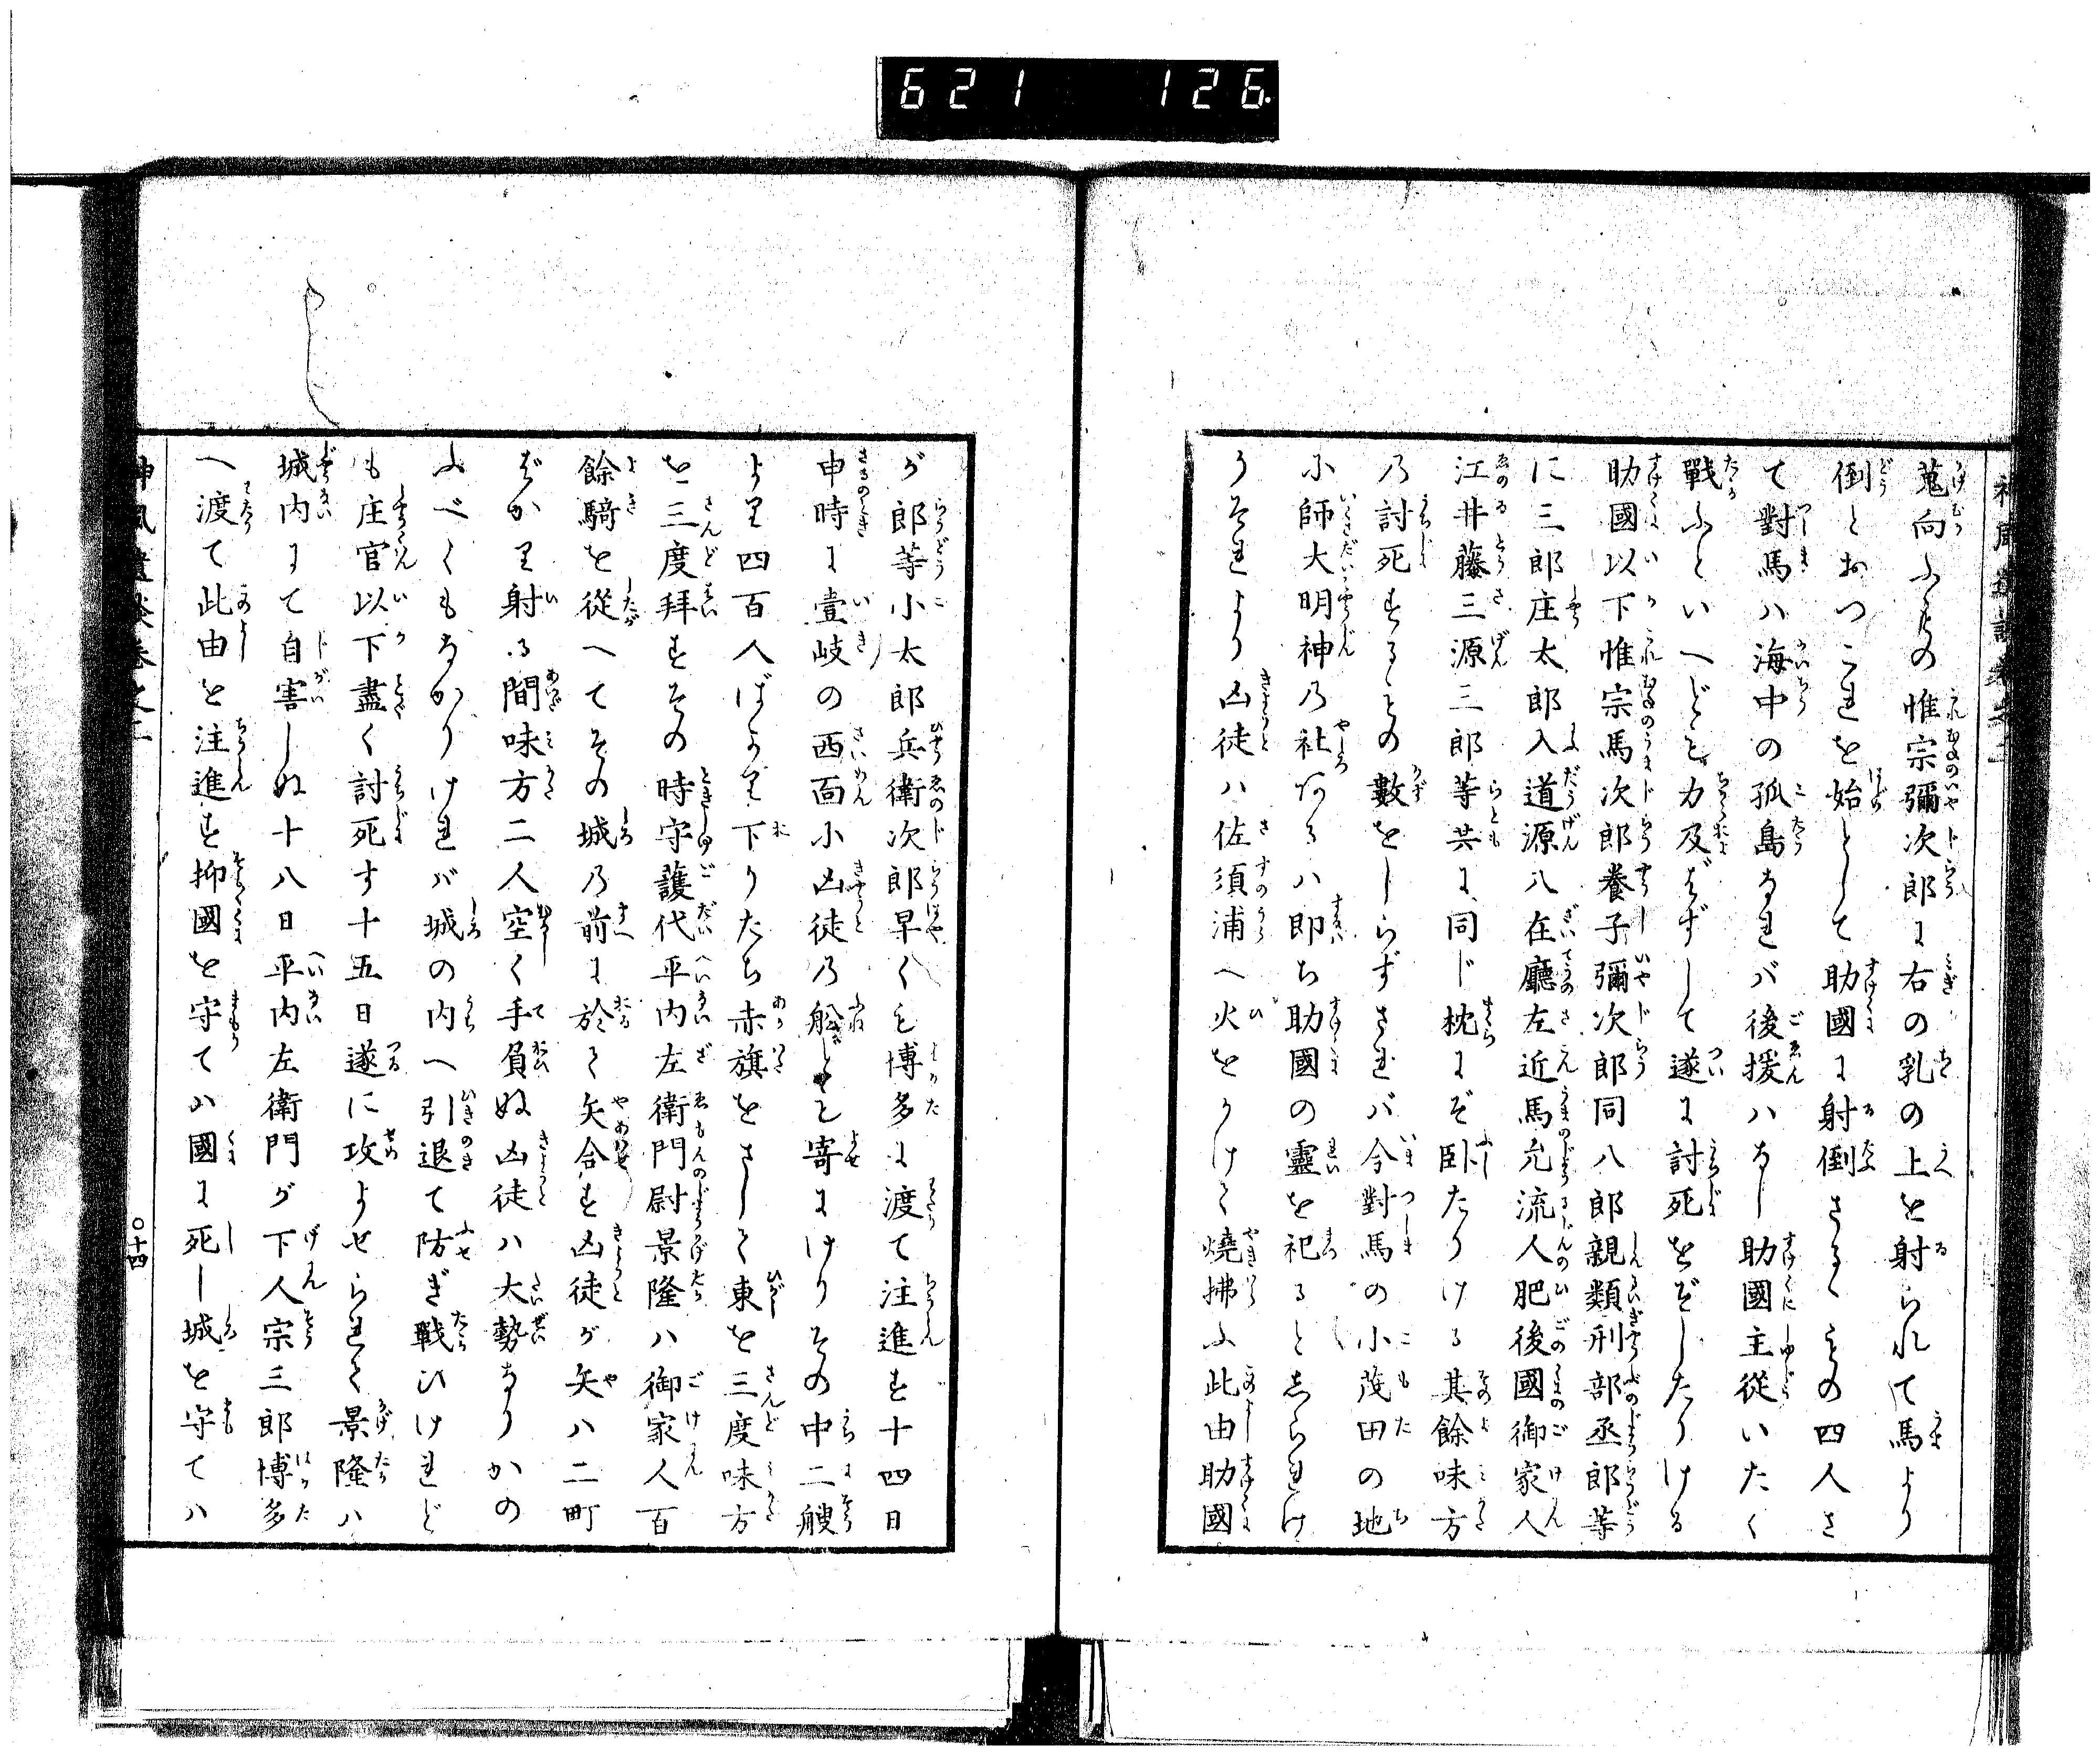 621 126.
蒐向ふもの惟宗彌次郎に右の乳の上を射られて馬より
倒とおつこれを始として助國に射倒さるゝもの四人さ
て對馬ハ海中の孤島なれバ後援ハなし助國主從いたく
戰ふといへども力及ばずして遂に討死をぞしたりける
助國以下惟宗馬次郎養子彌次郎同八郎親類刑部丞郎等
に三郎庄太郎入道源八在廳左近馬允流人肥後國御家人
江井藤三源三郎等共に同じ枕にぞ臥たりける其餘味方
乃討死するもの數をしらずされバ今對馬の小茂田の地
に師大明神乃社あるハ即ち助國の靈を祀るとしられけ
りそれより凶徒ハ佐須浦へ火をかけて燒拂ふ此由助國
が郎等小太郎兵衛次郎早くも博多に渡て注進す十四日
申時に壹岐の西面小凶徒乃舩ども寄にけりその中二艘
より四百人ばかり下りたち赤旗をさして東を三度味方
を三度拜すその時守護代平内左衛門尉景隆ハ御家人百
餘騎を從へてその城乃前に於て矢合す凶徒が矢ハ二町
ばかり射る間味方二人空く手負ぬ凶徒ハ大勢なりかの
ふべくもなかりけれバ城の内へ引退て防ぎ戰ひけれど
も庄官以下盡く討死す十五日遂に攻よせられて景隆ハ
城内にて自害しぬ十八日平内左衛門が下人宗三郎博多
へ渡て此由を注進す抑國を守てハ國に死し城を守てハ
十四